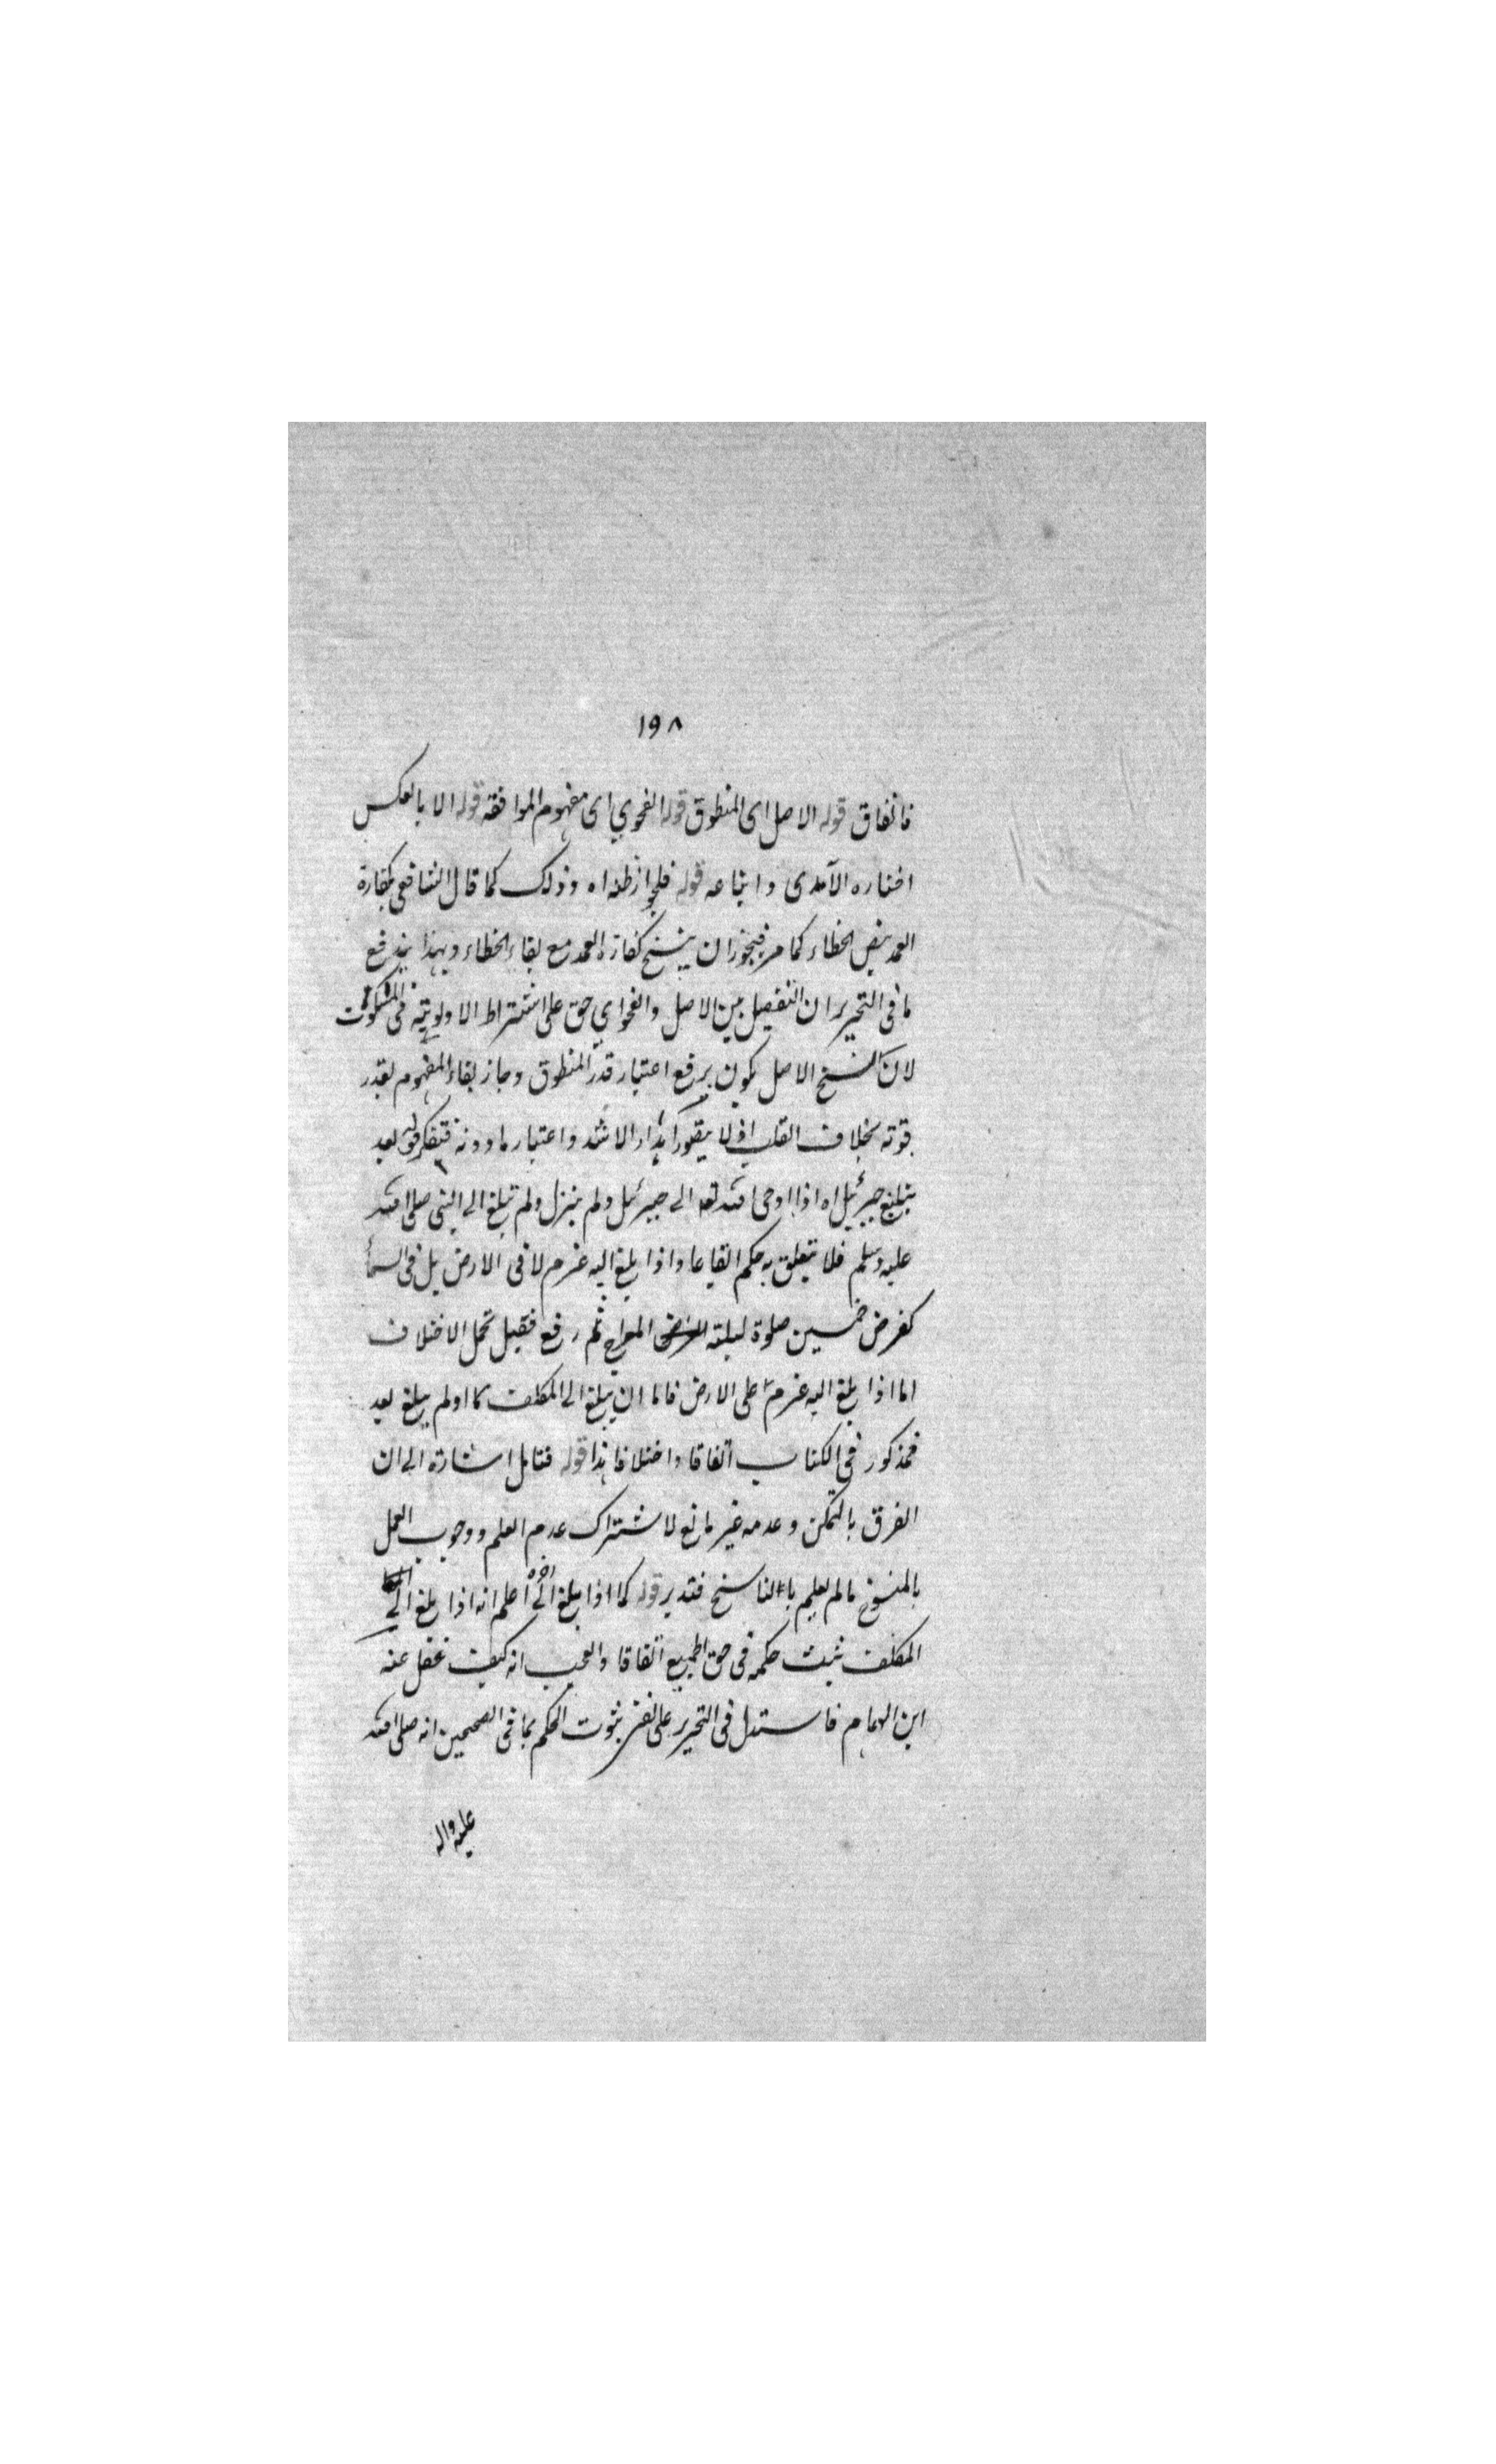 ١٩٨
فاتفاق قوله الاصل اى المنطوق قوله الفحوي اى مفهوم الموافقه قوله الا بالعكس
اختاره الآمدى واتباعه قوله فلجواز ظنه اه وذلك كما قال الشافعى بكفارة
العمد بنص الخطاء كما مر فيجوز ان ينسخ كفارة العمد مع بقاء الخطاء وبهذا يندفع
ما فى التحرير ان التفصيل بين الاصل والفحواي حق على اشتراط الاولوية فى المسكوت
لان نسخ الاصل يكون برفع اعتبار قدر المنطوق وجاز بقاء المفهوم بقدر
قوته بخلاف القلب اذ لا يتصور اهدار الاشد واعتبار ما دونه فتفكر قوله بعد
تبليغ جبرئيل اه اذا اوحى الله تعه الى جبرئيل ولم ينزل ولم تبلغ الى النبى صلى الله
عليه وسلم فلا يتعلق به حكم اتفاقا واذا بلغ اليه عزم لا فى الارض بل فى السمأ
كفرض خمسين صلوة ليلة المعراج ثم رفع فقيل محل الاختلاف
اما اذا بلغ اليه عزم على الارض فاما ان يبلغ الى المكلف ما او لم يبلغ بعد
فمذكور فى الكتاب اتفاقا واختلافا هذا قوله فتامل اشارة الى ان
الفرق بالتمكن وعدمه غير مانع لاشتراك عدم العلم ووجوب العمل
بالمنسوخ ما لم يعلم بالناسخ فتدبر قوله كما اذا بلغ الى آخره اعلم انه اذا بلغ الى
المكلف ثبت حكمه فى حق الجميع اتفاقا والعجب انه كيف غفل عنه
ابن الهمام فاستدل فى التحرير على نفى ثبوت الحكم بما فى الصحيحين انه صلى الله
عليه واله